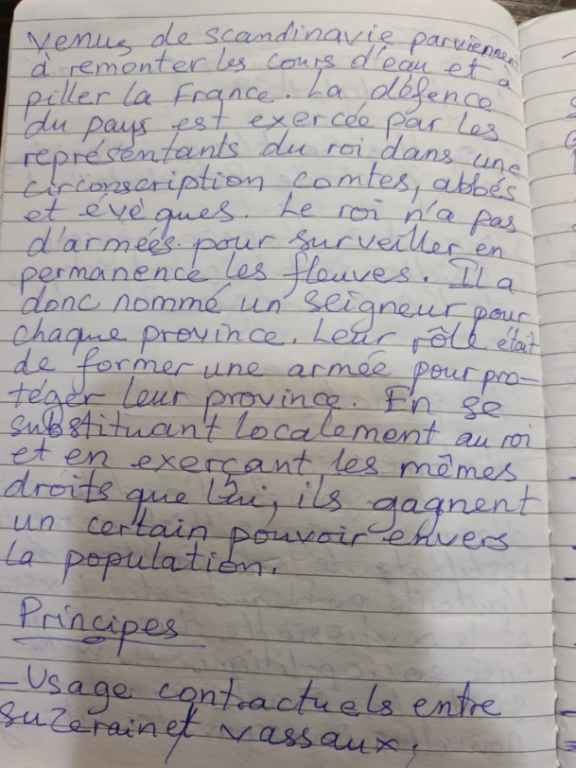 venus de scandinavie parviennent
à remonter les cours d'eau et à
piller la France. La défence
du pays est exercée par les
représentants du roi dans une
circonscription comtes, abbés
et évêques. Le roi n'a pas
d'armées pour surveiller en
permanence les fleuves. Il a
donc nommé un seigneur pour
chaque province. Leur rôle était
de former une armée pour pro-
téger leur province. En se
substituant localement au roi
et en exerçant les mêmes
droits que lui, ils gagnent
un certain pouvoir envers
la population.
Principes
- Usage contractuels entre
suzerain et vassaux,